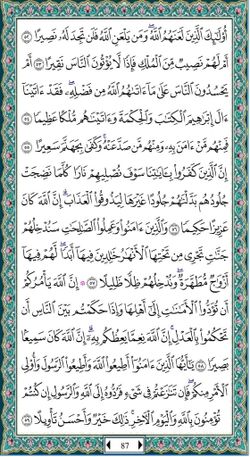 أُوْلَٰٓئِكَ ٱلَّذِينَ لَعَنَهُمُ ٱللَّهُۖ وَمَن يَلۡعَنِ ٱللَّهُ فَلَن تَجِدَ لَهُۥ نَصِيرًا ٥٢
أَمۡ لَهُمۡ نَصِيبٞ مِّنَ ٱلۡمُلۡكِ فَإِذٗا لَّا يُؤۡتُونَ ٱلنَّاسَ نَقِيرًا ٥٣ أَمۡ
يَحۡسُدُونَ ٱلنَّاسَ عَلَىٰ مَآ ءَاتَىٰهُمُ ٱللَّهُ مِن فَضۡلِهِۦۖ فَقَدۡ ءَاتَيۡنَآ
ءَالَ إِبۡرَٰهِيمَ ٱلۡكِتَٰبَ وَٱلۡحِكۡمَةَ وَءَاتَيۡنَٰهُم مُّلۡكًا عَظِيمٗا ٥٤
فَمِنۡهُم مَّنۡ ءَامَنَ بِهِۦ وَمِنۡهُم مَّن صَدَّ عَنۡهُۚ وَكَفَىٰ بِجَهَنَّمَ سَعِيرًا ٥٥
إِنَّ ٱلَّذِينَ كَفَرُواْ بِـَٔايَٰتِنَا سَوۡفَ نُصۡلِيهِمۡ نَارٗا كُلَّمَا نَضِجَتۡ
جُلُودُهُم بَدَّلۡنَٰهُمۡ جُلُودًا غَيۡرَهَا لِيَذُوقُواْ ٱلۡعَذَابَۗ إِنَّ ٱللَّهَ كَانَ
عَزِيزًا حَكِيمٗا ٥٦ وَٱلَّذِينَ ءَامَنُواْ وَعَمِلُواْ ٱلصَّٰلِحَٰتِ سَنُدۡخِلُهُمۡ
جَنَّٰتٖ تَجۡرِي مِن تَحۡتِهَا ٱلۡأَنۡهَٰرُ خَٰلِدِينَ فِيهَآ أَبَدٗاۖ لَّهُمۡ فِيهَآ
أَزۡوَٰجٞ مُّطَهَّرَةٞۖ وَنُدۡخِلُهُمۡ ظِلّٗا ظَلِيلًا ٥٧ ۞ إِنَّ ٱللَّهَ يَأۡمُرُكُمۡ
أَن تُؤَدُّواْ ٱلۡأَمَٰنَٰتِ إِلَىٰٓ أَهۡلِهَا وَإِذَا حَكَمۡتُم بَيۡنَ ٱلنَّاسِ أَن
تَحۡكُمُواْ بِٱلۡعَدۡلِۚ إِنَّ ٱللَّهَ نِعِمَّا يَعِظُكُم بِهِۦٓۗ إِنَّ ٱللَّهَ كَانَ سَمِيعَۢا
بَصِيرٗا ٥٨ يَٰٓأَيُّهَا ٱلَّذِينَ ءَامَنُوٓاْ أَطِيعُواْ ٱللَّهَ وَأَطِيعُواْ ٱلرَّسُولَ وَأُوْلِي
ٱلۡأَمۡرِ مِنكُمۡۖ فَإِن تَنَٰزَعۡتُمۡ فِي شَيۡءٖ فَرُدُّوهُ إِلَى ٱللَّهِ وَٱلرَّسُولِ إِن كُنتُمۡ
تُؤۡمِنُونَ بِٱللَّهِ وَٱلۡيَوۡمِ ٱلۡأٓخِرِۚ ذَٰلِكَ خَيۡرٞ وَأَحۡسَنُ تَأۡوِيلًا ٥٩
87